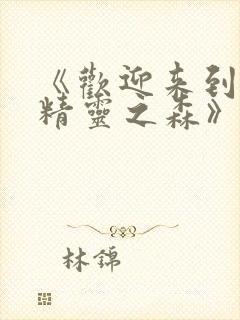 《歡迎来到
精靈之森》
林錦